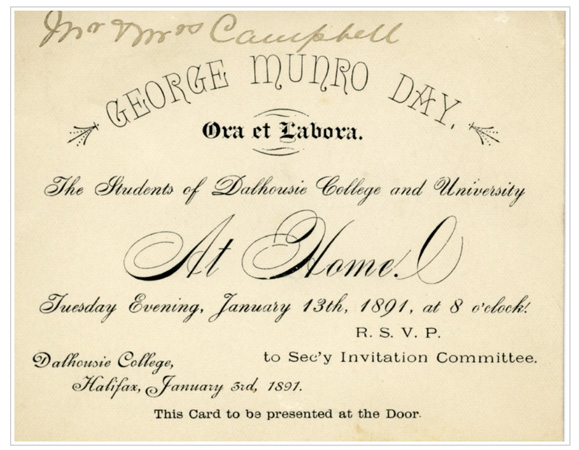 Mr & Mrs Campbell
GEORGE MUNRO DAY.
Ora et Labora.
The Students of Dalhousie College and University
At Home.
Tuesday Evening, January 13th, 1891, at 8 o'clock.
R. S. V. P.
to Sec'y Invitation Committee.
Dalhousie College,
Halifax, January 3rd, 1891.
This Card to be presented at the Door.